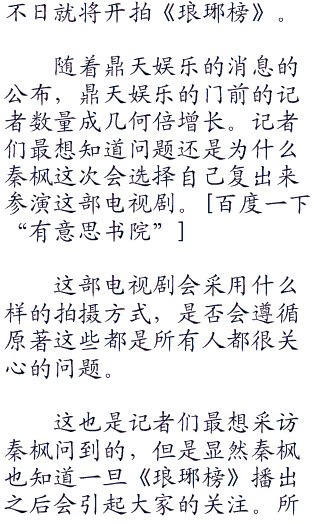 不日就将开拍《琅琊榜》。
随着鼎天娱乐的消息的
公布，鼎天娱乐的门前的记
者数量成几何倍增长。记者
们最想知道问题还是为什么
秦枫这次会选择自己复出来
参演这部电视剧。[百度一下
“有意思书院”]
这部电视剧会采用什么
样的拍摄方式，是否会遵循
原著这些都是所有人都很关
心的问题。
这也是记者们最想采访
秦枫问到的，但是显然秦枫
也知道一旦《琅琊榜》播出
之后会引起大家的关注。所